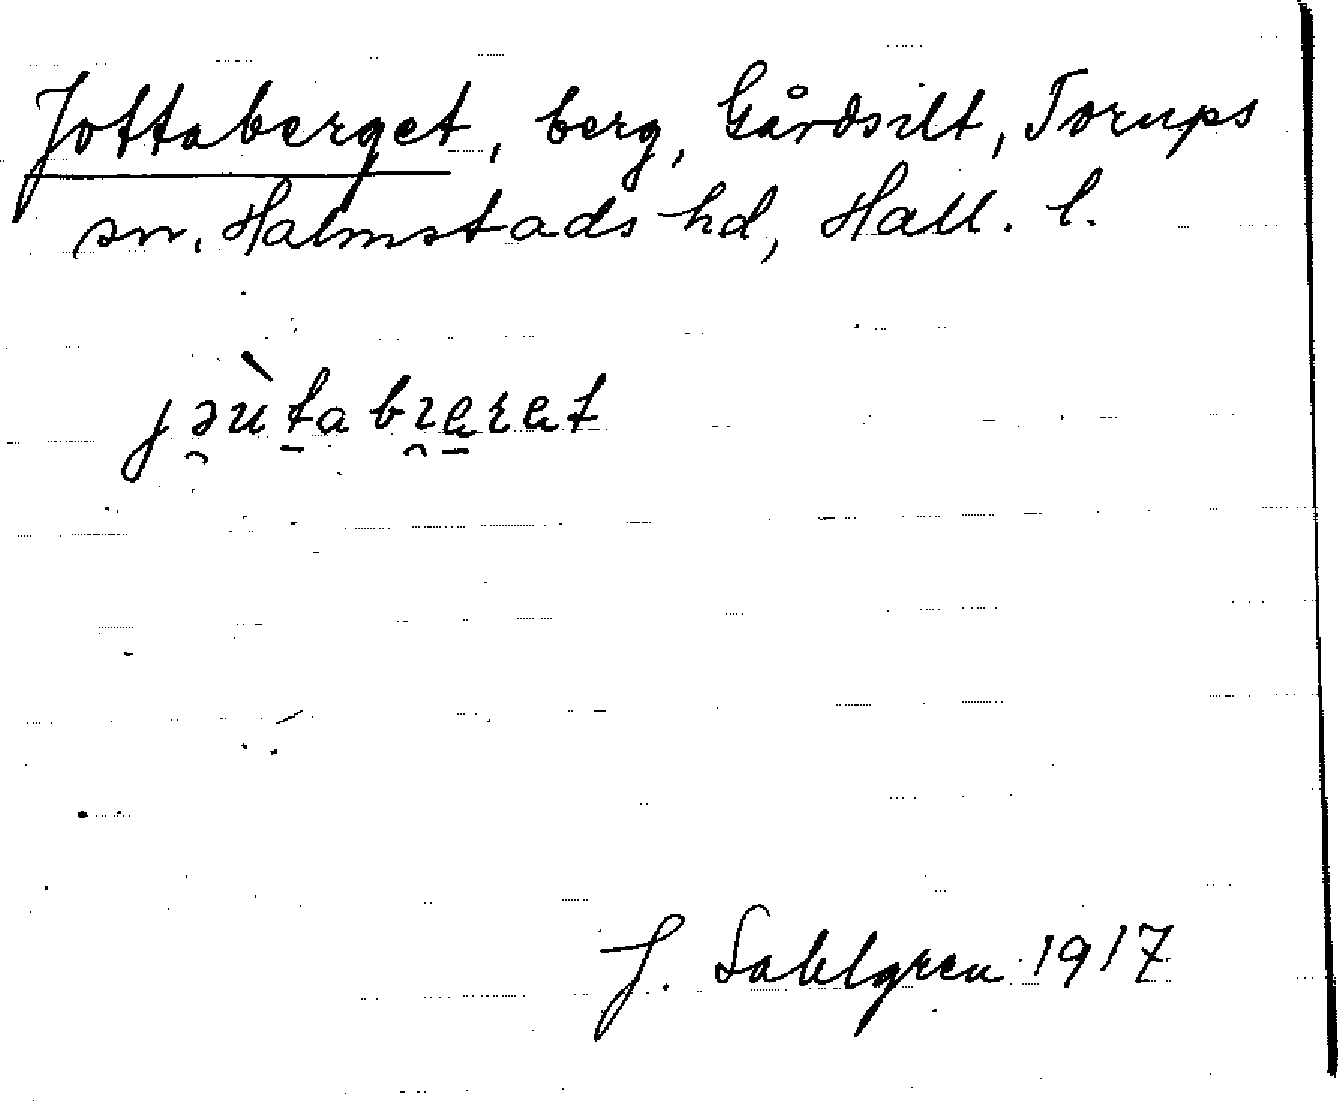 Jottaberget, berg, Gårdsilt, Torups
sn. Halmstads hd, Hall. l.
jə̯ùt̠abr̯e̠ret
J. Sahlgren 1917